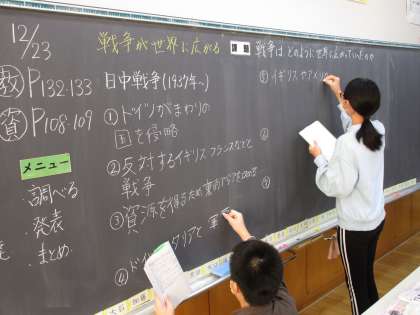 12/23
戦争が世界に広がる
課題
戦争は どのように世界に広がっていったのか
教 P132-133
資 P108-109
メニュー
・調べる
・発表
・まとめ
日中戦争(1937年~)
①ドイツがまわりの
国を侵略
②反対するイギリス フランスなどと
戦争
③資源を得るため東南アジア
④ドイツ イタリアと 軍
イギリスやアメリカ